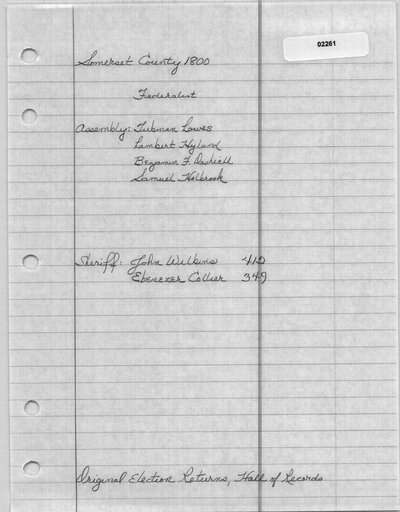 02261
Somerset County 1800
Federalist
Assembly: Tubman Lowes
Lambert Hyland
Benjamin F. Dashiell
Samuel Holbrook
Sheriff: John Wilkins 412
Ebenezer Collier 349
Original Election Returns, Hall of Records